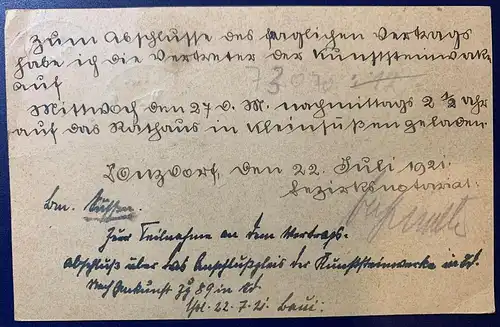 Zum Abschlusse des fraglichen Vertrags
habe ich die Vertreter der Kunststeinwerke
auf
Mittwoch den 27 d. M. nachmittags 2 ½ Uhr
auf das Rathaus in Kleinsüßen geladen.
Donzdorf, den 22. Juli 1921.
Bezirksnotariat.
bm. Süssen.
Zur Teilnahme an dem Vertrags-
abschluß über das Anschlußgleis der Kunststeinwerke in Sd.
Nach Ankunft Zg 89 in Sd
22.7.21.